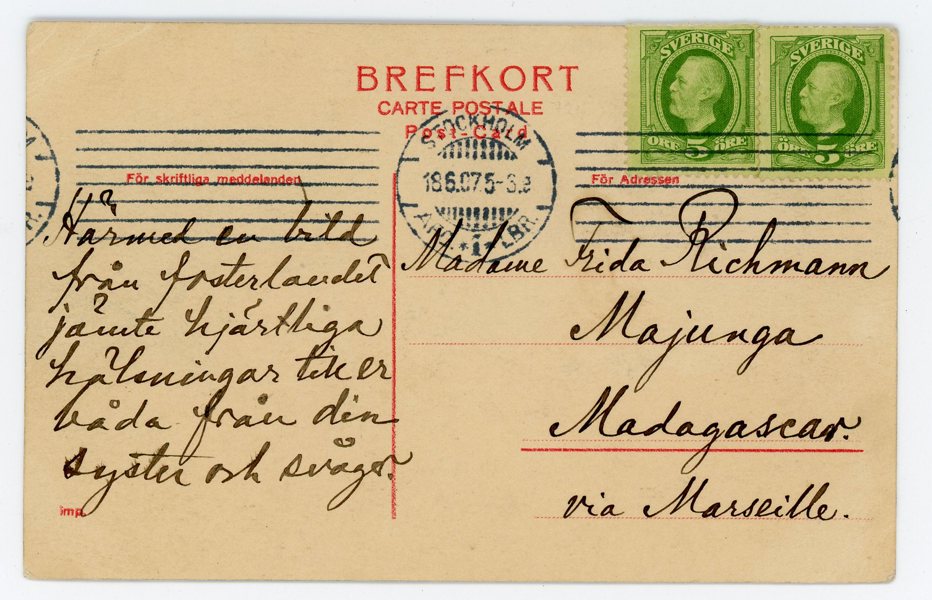 BREFKORT
CARTE POSTALE
Post-Card
SVERIGE
ÖRE 5 ÖRE
SVERIGE
ÖRE 5 ÖRE
STOCKHOLM
18.6.07.5-6.e
1
LBR.
För skriftliga meddelanden
Härmed en bild
från fosterlandet
jämte hjärtliga
hälsningar till er
båda från din
syster och svåger.
Imp.
För Adressen
Madame Frida Richmann
Majunga
Madagascar.
via Marseille.